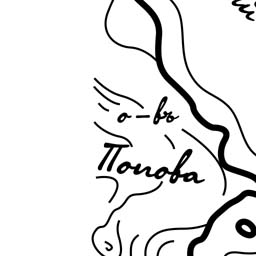 о-въ
Попова